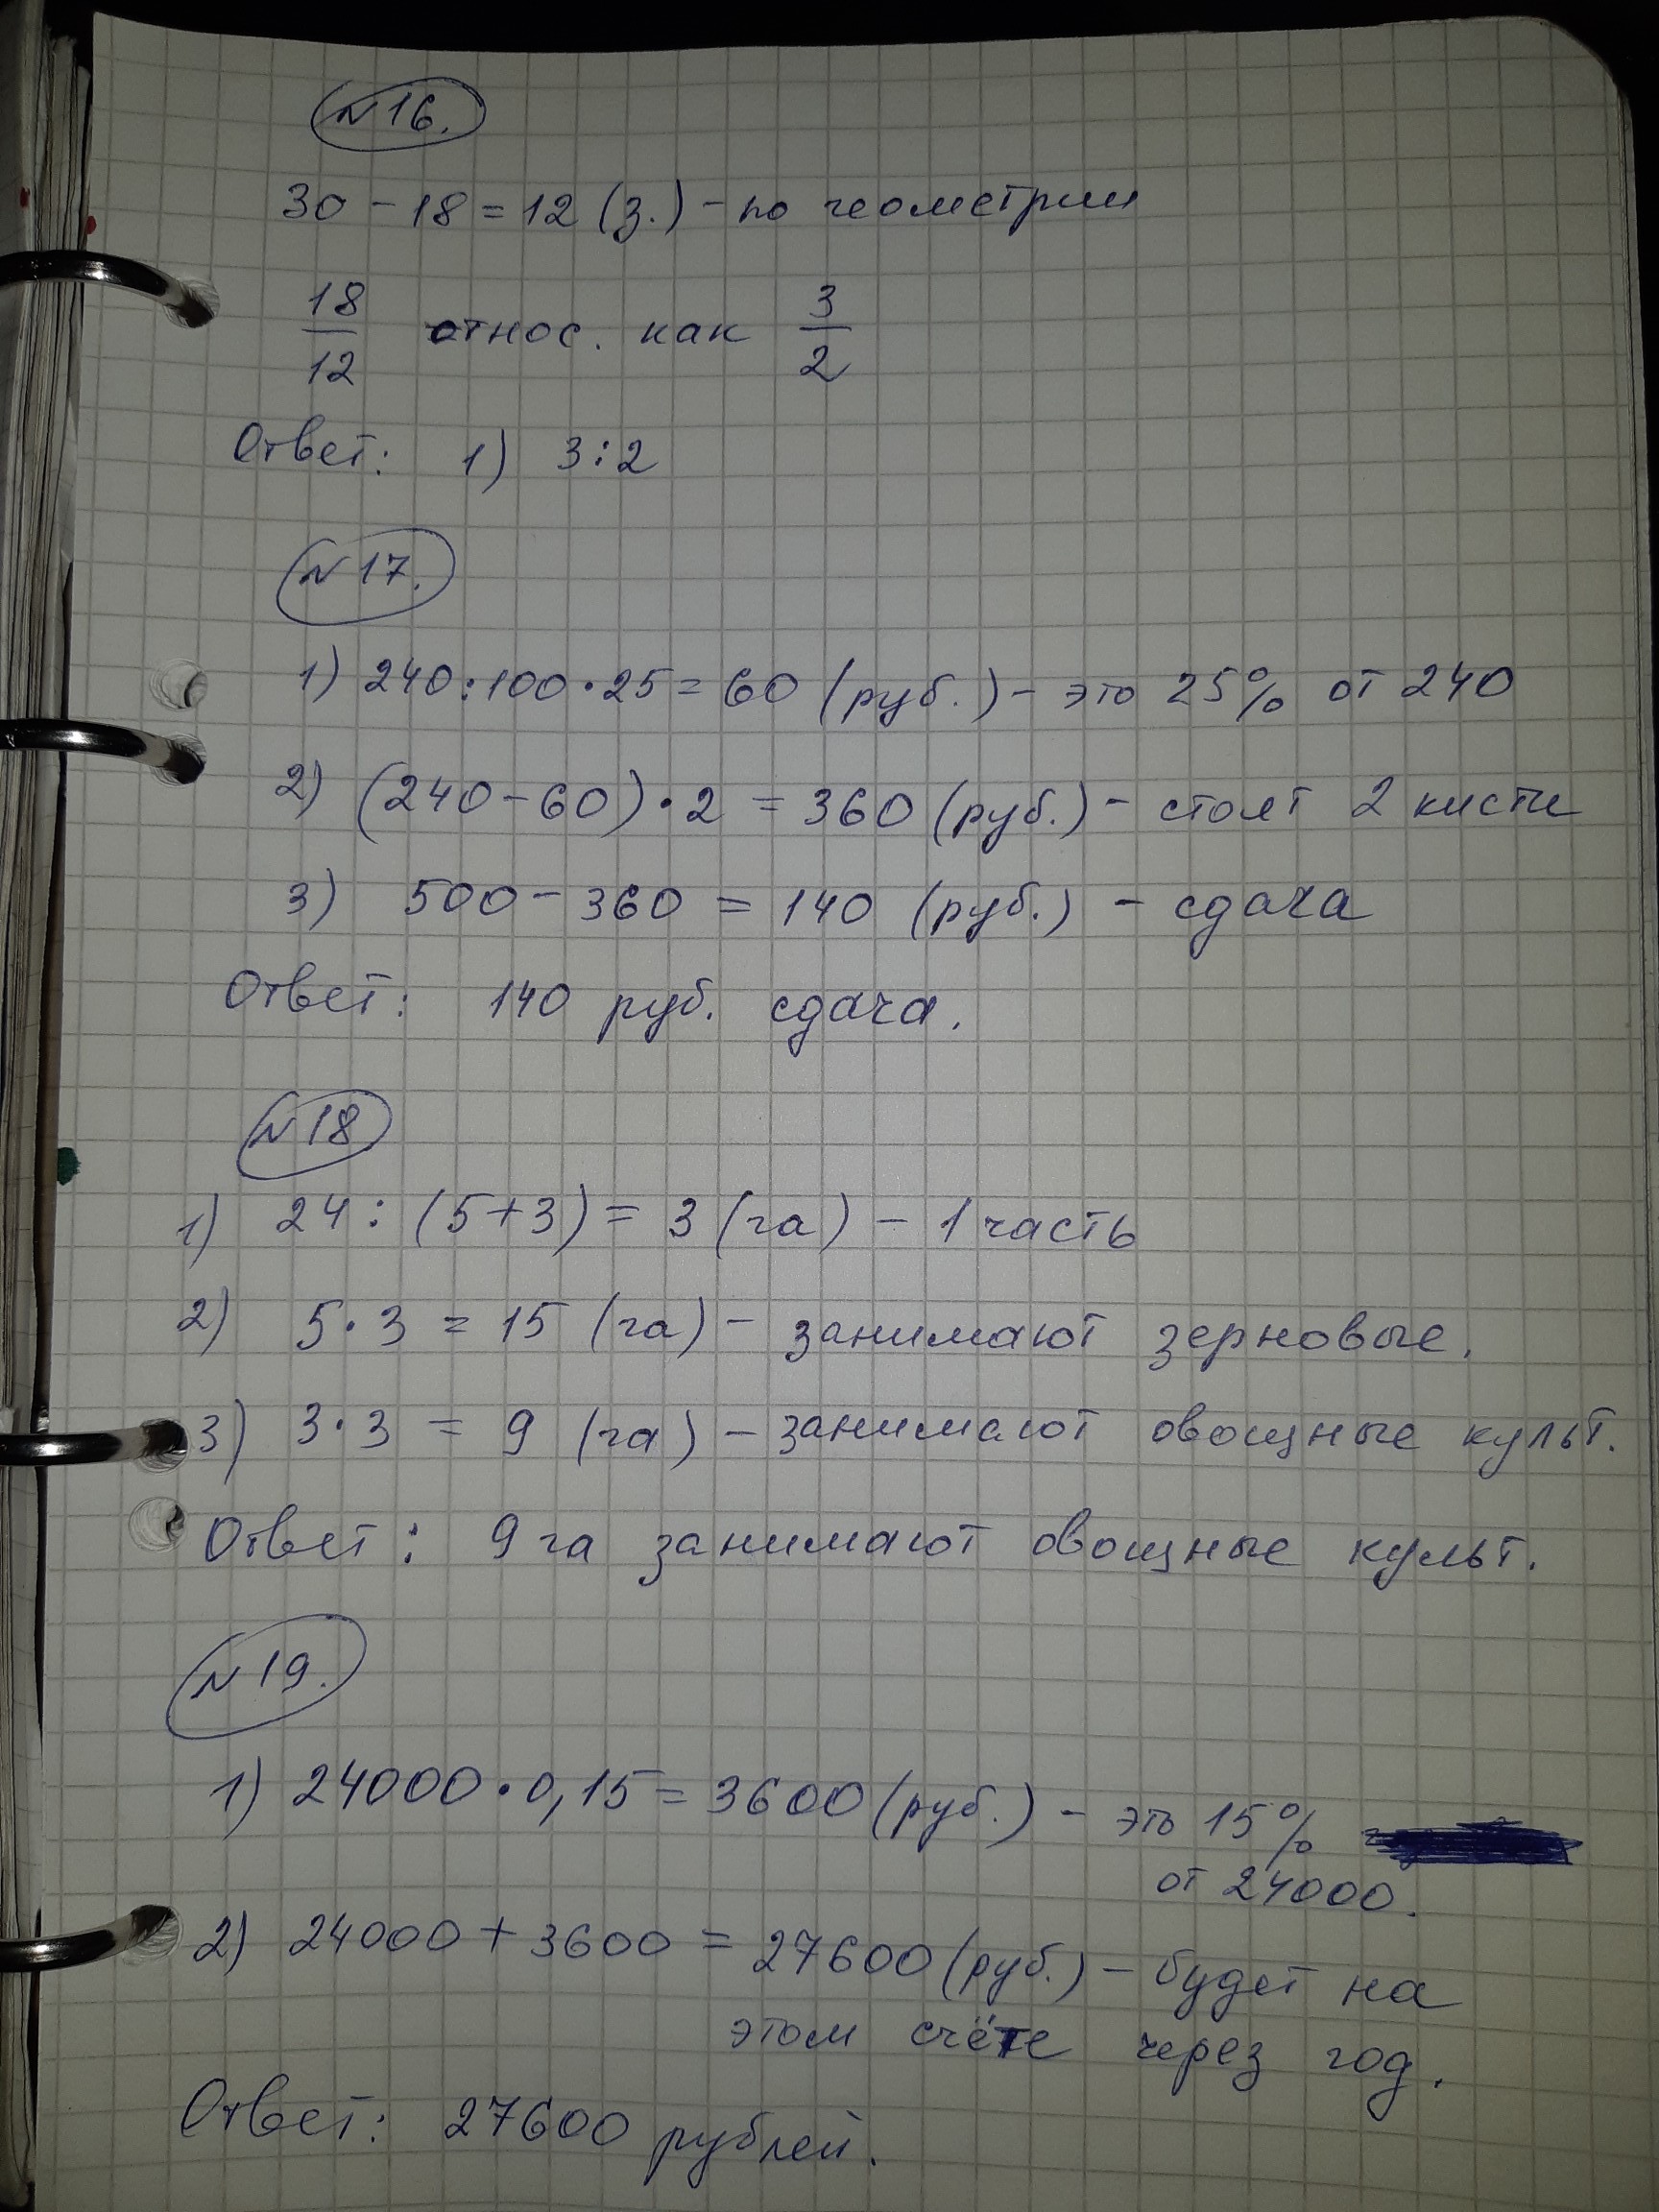 №16.
30 - 18 = 12 (з.) - по геометрии
18/12 относ. как 3/2
Ответ: 1) 3:2
№17.
1) 240:100·25 = 60 (руб.) - это 25% от 240
2) (240-60)·2 = 360 (руб.) - стоят 2 кисти
3) 500 - 360 = 140 (руб.) - сдача
Ответ: 140 руб. сдача.
№18
1) 24 : (5+3) = 3 (га) - 1 часть
2) 5·3 = 15 (га) - занимают зерновые.
3) 3·3 = 9 (га) - занимают овощные культ.
Ответ: 9 га занимают овощные культ.
№19.
1) 24000·0,15 = 3600 (руб.) - это 15%
от 24000.
2) 24000 + 3600 = 27600 (руб.) - будет на
этом счёте через год.
Ответ: 27600 рублей.